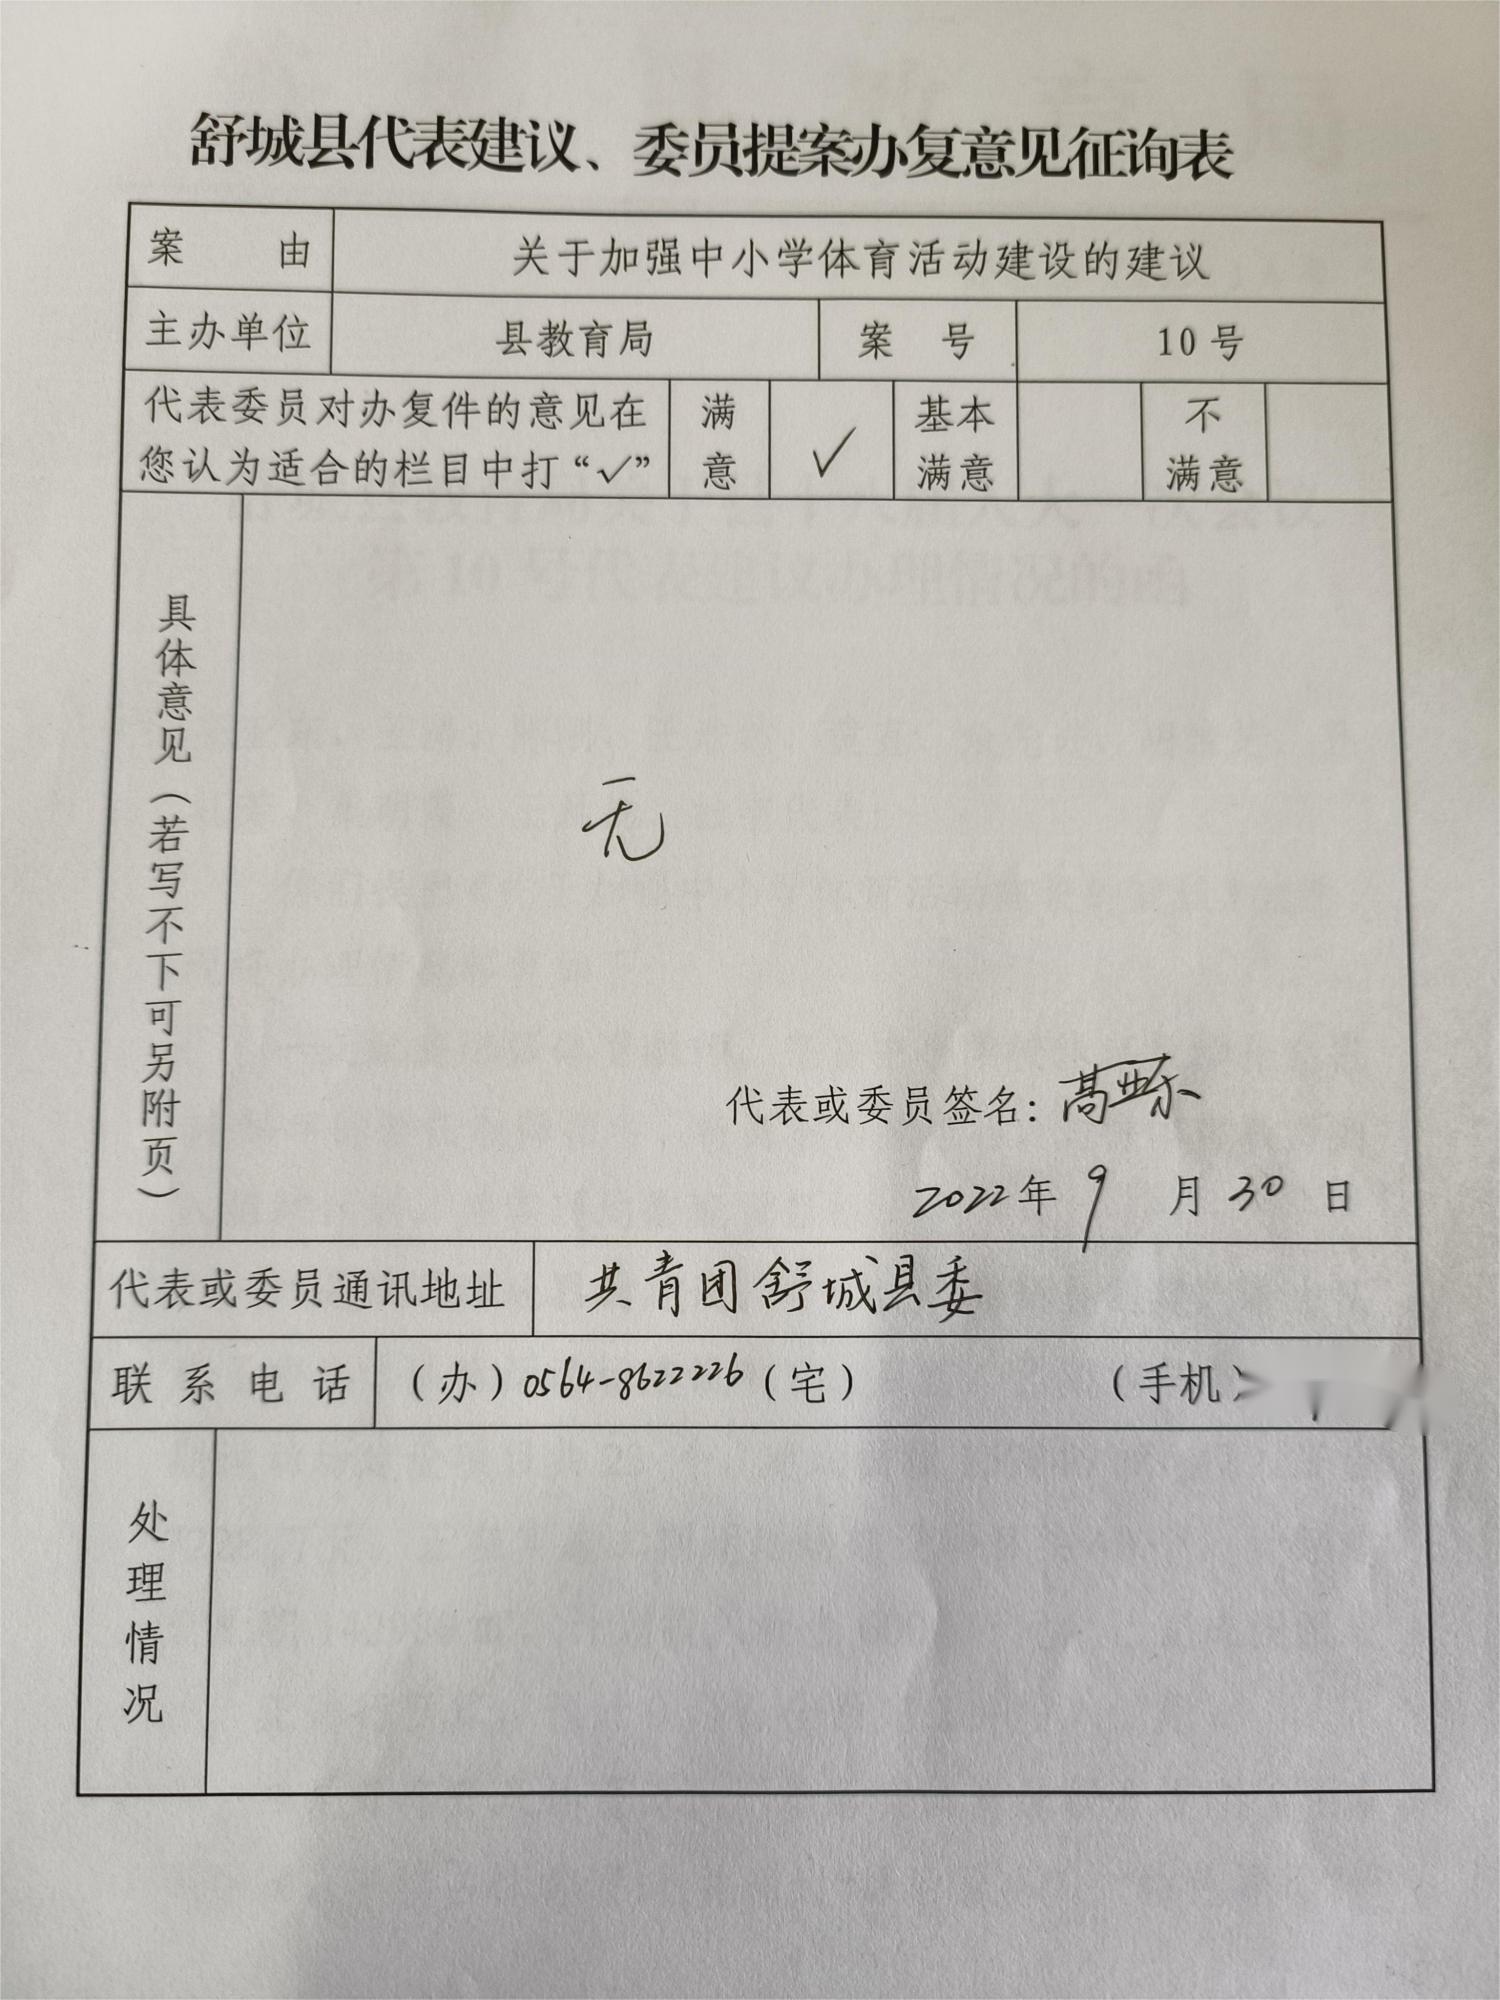 舒城县代表建议、委员提案办复意见征询表
案 由 关于加强中小学体育活动建设的建议
主办单位 县教育局 案 号 10号
代表委员对办复件的意见在
您认为适合的栏目中打“✓”
满意 ✓ 基本满意 不满意
具体意见（若写不下可另附页）
无
代表或委员签名：
2022年 9 月 30 日
代表或委员通讯地址 共青团舒城县委
联系电话 （办）0564-8622226（宅） （手机）
处理情况